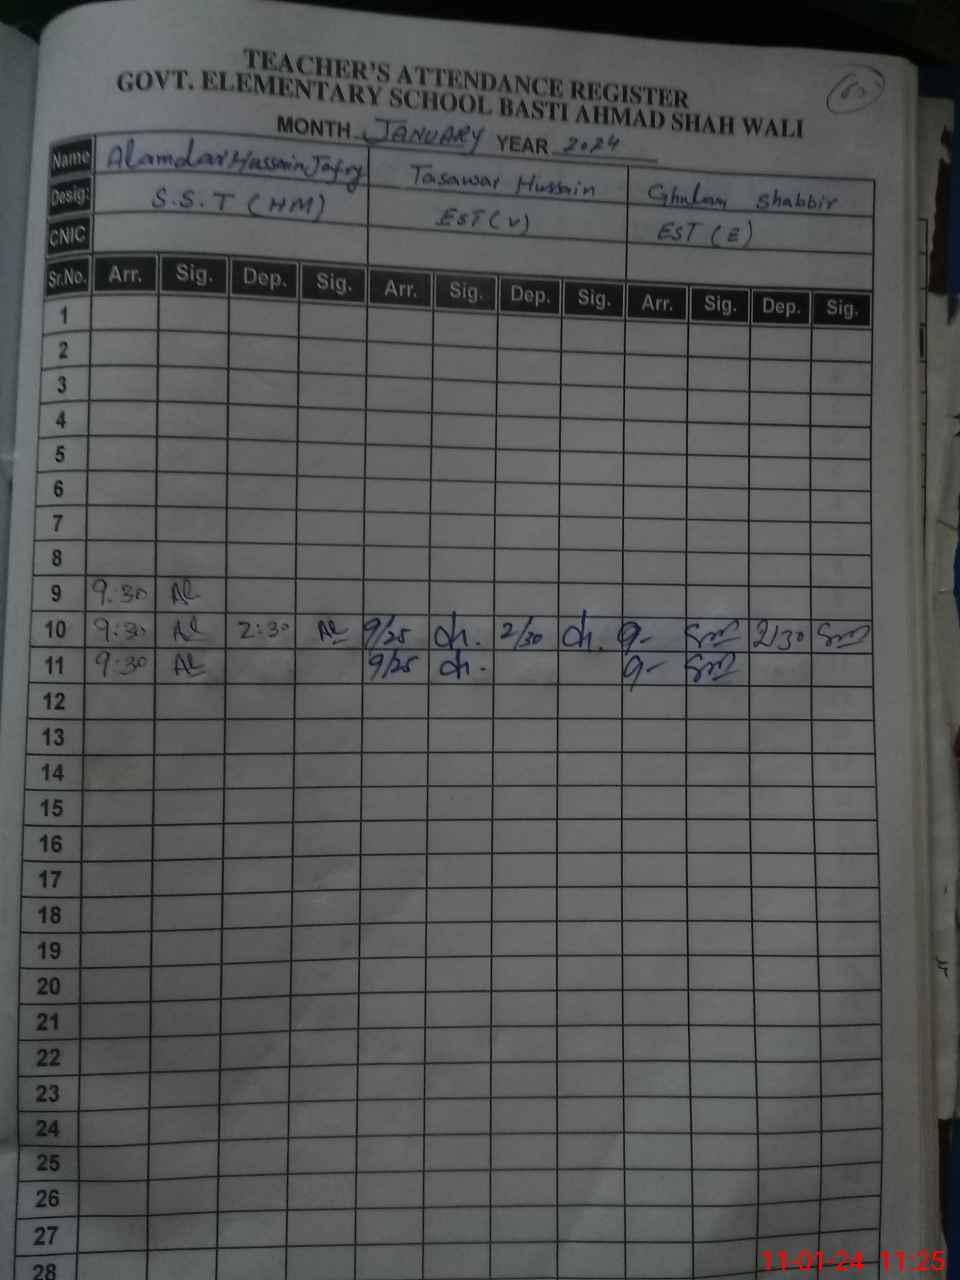 TEACHER'S ATTENDANCE REGISTER
GOVT. ELEMENTARY SCHOOL BASTI AHMAD SHAH WALI
MONTH JANUARY YEAR 2024
Name Alamdar Hussain Jafry Tasawar Hussain Ghulam Shabbir
Desig: S.S.T (HM) EST (V) EST (E)
CNIC
Sr.No. Arr. Sig. Dep. Sig. Arr. Sig. Dep. Sig. Arr. Sig. Dep. Sig.
1
2
3
4
5
6
7
8
9 9:30
10 9:30 2:30 9/25 2/30 9- 2/30
11 9:30 9/25 9-
12
13
14
15
16
17
18
19
20
21
22
23
24
25
26
27
28
11-01-24 11:25